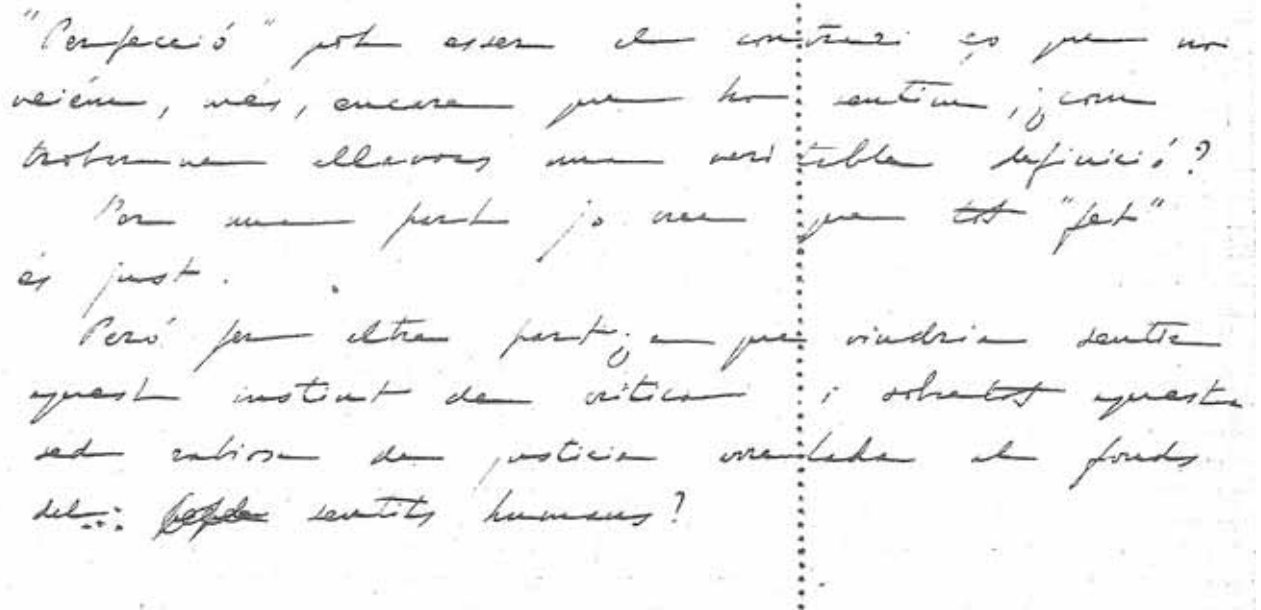 "Perfecció" pot esser el contrari ço que no
veiém, més, encara que ho sentim, ¿com
trobarem allavors una veritable definició?
Per una part jo crec que tot "fet"
és just.
Peró per altra part ¿a que vindria sentir
aquest instint de criticar i sobretot aquesta
sed rabiosa de justicia al fonds
dels sentits humans?